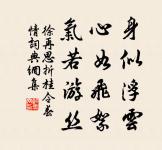 身似浮雲
心如飛絮
氣若游絲
徐再思折桂令春
情詞典網集